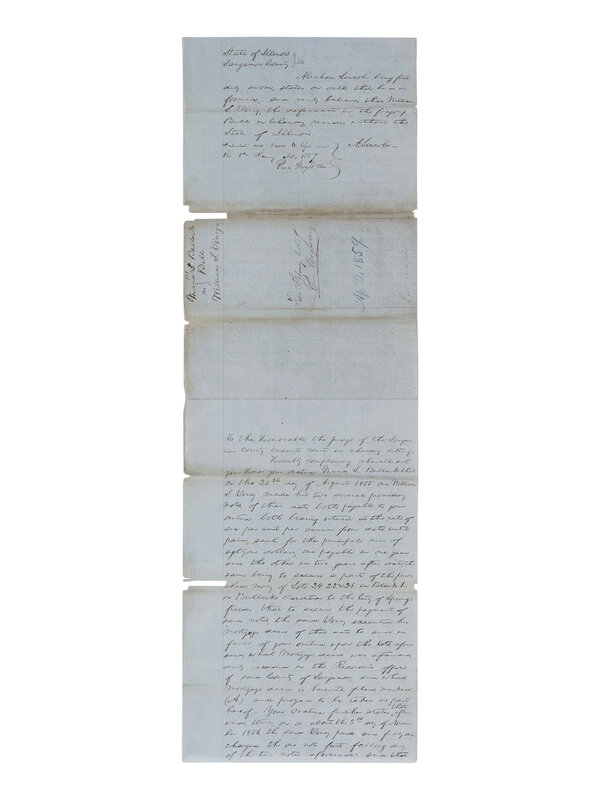 State of Illinois
Sangamon County } ss
Abraham Lincoln being first
duly sworn, states on oath that he is in
formed, and verily believes that William
S. Viney, the defendant in the foregoing
Bill in Chancery, resides without the
State of Illinois.
A. Lincoln
the 3rd day 1857
Maria L. Bullock
vs } Bill
William S. Viney
Ap 3, 1857
To the Honorable, the judge of the Sanga
mon County circuit court in chancery sitting
Humbly complaining showeth unto
your Honor your oratrix Maria L. Bullock that
on the 20th day of August 1855 one William
S. Viney made his two several promissory
notes of that date, both payable to your
oratrix both bearing interest at the rate of
six per cent per annum from date until
paid, each for the principal sum of
eighty dollars, one payable in one year
and the other in two years after date the
same being to secure a part of the pur
chase money of Lots 24 25 & 26 in Block 1.
in Bullock's addition to the City of Spring-
field. That to secure the payment of
said notes the said Viney executed his
Mortgage deed of that date to and in
favor of your oratrix upon the lots afore
said, which Mortgage deed was afterwards
duly recorded in the Recorder's office
of said County of Sangamon and which
Mortgage deed is herewith filed, marked
(A) and prayed to be taken as part
hereof. Your Oratrix further states that after
wards, towit, on or about the 5th day of Novem
ber 1856 the said Viney paid and
the one first falling due
of the two notes aforesaid; and that